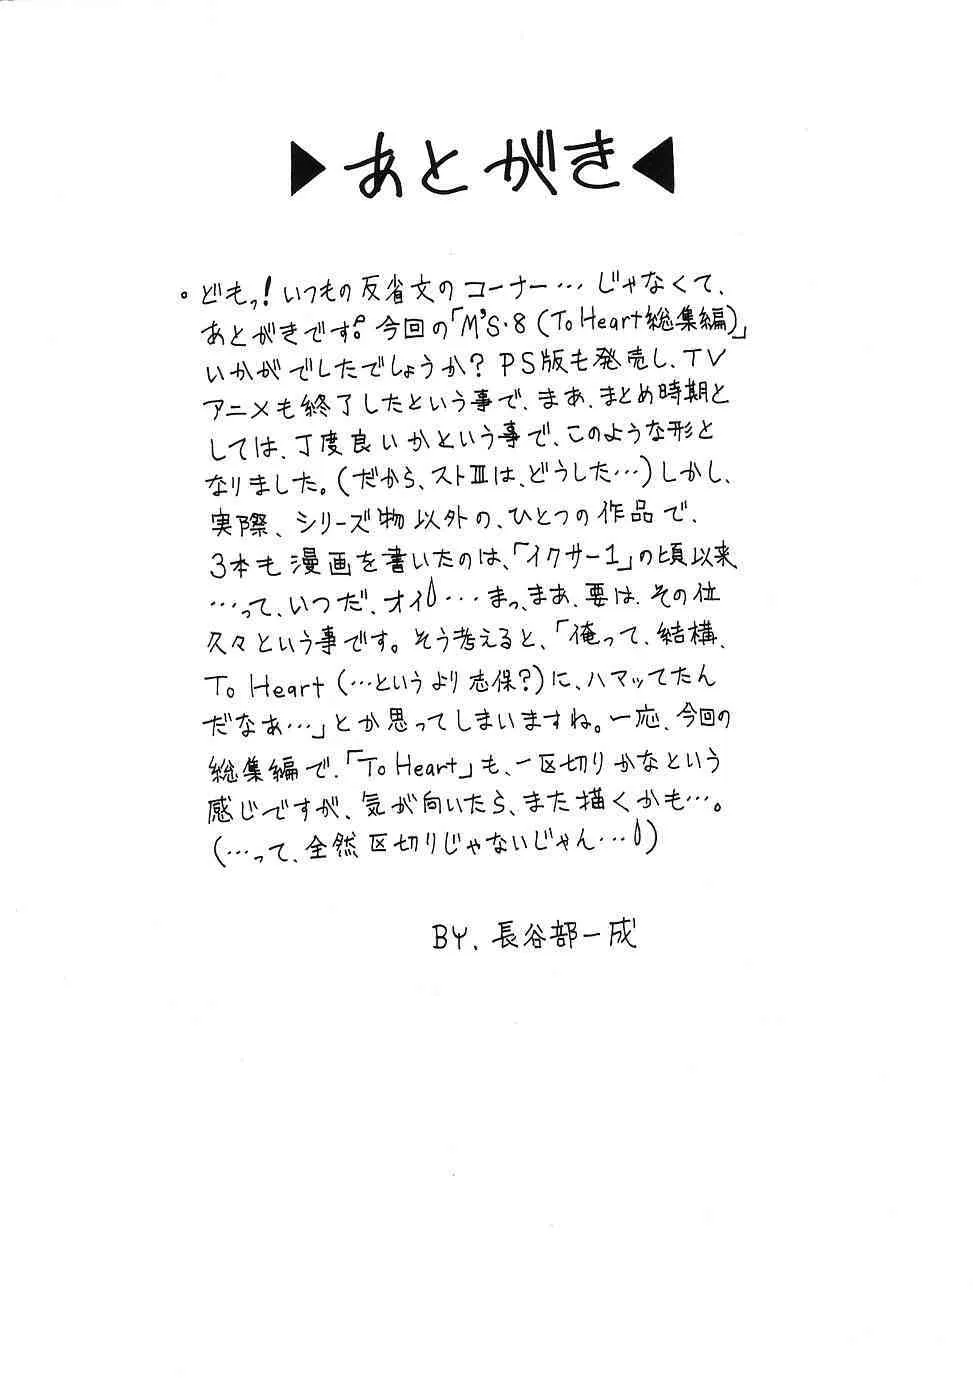 ▶あとがき◀
。どもっ!いつもの反省文のコーナー…じゃなくて、
あとがきです。今回の「M'S・8(To Heart総集編)」
いかがでしたでしょうか?PS版も発売し、TV
アニメも終了したという事で、まあ、まとめ時期と
しては、丁度良いかという事で、このような形と
なりました。(だから、ストⅢは、どうした…)しかし、
実際、シリーズ物以外の、ひとつの作品で、
3本も漫画を書いたのは、「イクサー1」の頃以来
…って、いつだ、オイ…まっ、まあ、要は、その位
久々という事です。そう考えると、「俺って、結構、
To Heart(…というより志保?)に、ハマッてたん
だなあ…」とか思ってしまいますね。一応、今回の
総集編で、「To Heart」も、一区切りかなという
感じですが、気が向いたら、また描くかも…。
(…って、全然区切りじゃないじゃん…)
BY、長谷部一成